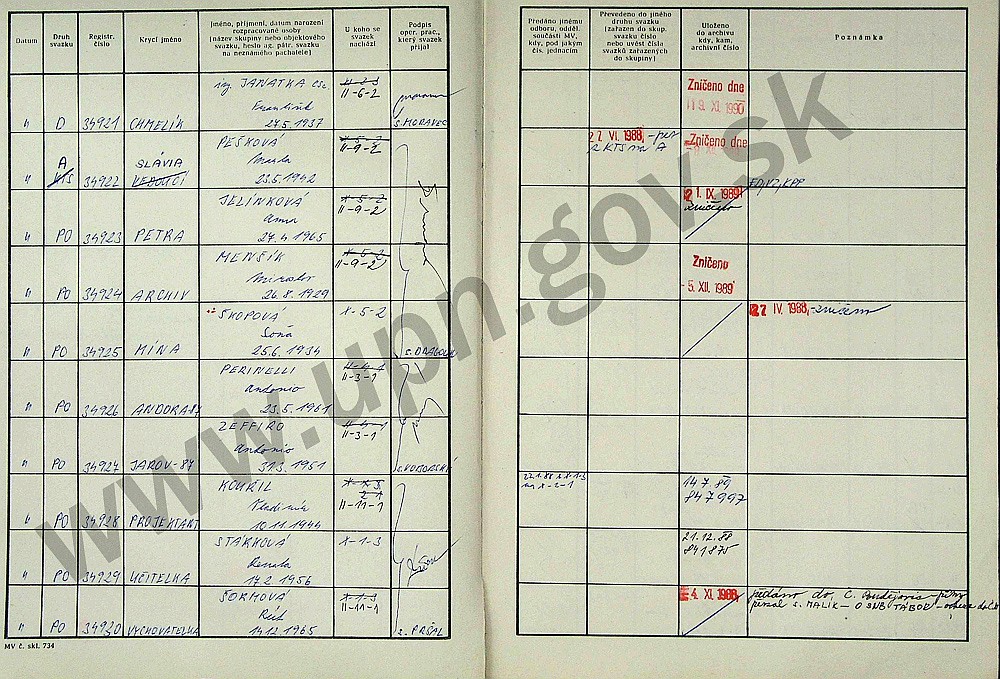 Datum
Druh svazku
Registr. číslo
Krycí jméno
Jméno, příjmení, datum narození
rozpracované osoby
(název skupiny nebo objektového
svazku, heslo ag. pátr. svazku
na neznámého pachatele)
U koho se
svazek
nachází
Podpis
oper. prac.,
který svazek
přijal
Předáno jinému
odboru, odděl.
součásti MV,
kdy, pod jakým
čís. jednacím
Převedeno do jiného
druhu svazku
(zařazen do skup.
svazku číslo
nebo uvést čísla
svazků zařazených
do skupiny)
Uloženo
do archivu
kdy, kam,
archivní číslo
Poznámka
ing. JANATKA CSc.
František
" D 34921 CHMELÍK 27.5.1937 II-6-2 s. MORAVEC
Zničeno dne
19. XI. 1990
PEŠKOVÁ
A SLÁVIA
" 34922 VEDOUCÍ 23.5.1942 II-9-2
27 VI. 1988
Zničeno dne
JELÍNKOVÁ
Anna
" PO 34923 PETRA 27.4.1965 X-5-2 II-9-2
1. IX. 1989
zničeno
MENŠÍK
Miroslav
" PO 34924 ARCHIV 26.8.1929 X-5-2 II-9-2
Zničeno
-5. XII. 1989
ŠKOPOVÁ
Soňa
" PO 34925 MÍNA 25.6.1934 X-5-2
27 IV. 1988, -zničen
PERINELLI
Antonio
" PO 34926 ANDORA-87 23.5.1961 II-3-1
ZEFFIRO
Antonio
" PO 34927 JAROV-87 31.3.1951 II-3-1
KOUŘIL
Vladimír
" PO 34928 PROJEKTANT 10.11.1944 II-11-1
14.7.89
847997
STARKOVÁ
Renata
" PO 34929 UČITELKA 17.2.1956 X-1-3
21.12.88
841875
ŠORMOVÁ
Rút
" PO 34930 VYCHOVATELKA 14.12.1965 X-1-3 II-11-1 s. PRŠAL
4. XI. 1988,
předáno do Č. Budějovic
s. MALIK - O SNB TÁBOR
MV č. skl. 734
www.upn.gov.sk